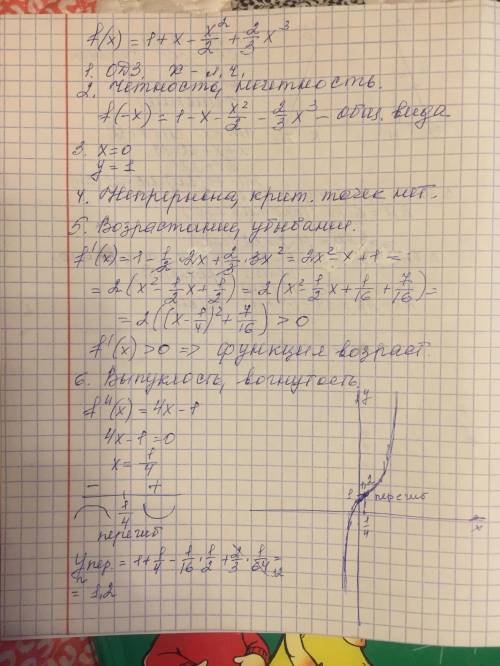 f(x) = 1+x - x²/2 + 2/3 x³
1. ОДЗ, x - л.ч.
2. Четность, нечетность.
f(-x) = 1 - x - x²/2 - 2/3 x³ - общ. вида
3. x=0
y=1
4. Непрерывна, крит. точек нет.
5. Возрастание, убывание.
f'(x) = 1 - 1/2 · 2x + 2/3 · 3x² = 2x² - x + 1 =
= 2(x² - 1/2 x + 1/2) = 2(x² - 1/2 x + 1/16 + 7/16) =
= 2((x - 1/4)² + 7/16) > 0
f'(x) > 0 => функция возраст.
6. Выпуклость, вогнутость.
f"(x) = 4x-1
4x-1=0
x = 1/4
- +
1/4
перегиб
y пер. = 1 + 1/4 - 1/16 · 1/2 + 2/3 · 1/64 =
= 1,2
y
1
перегиб
1/4
x